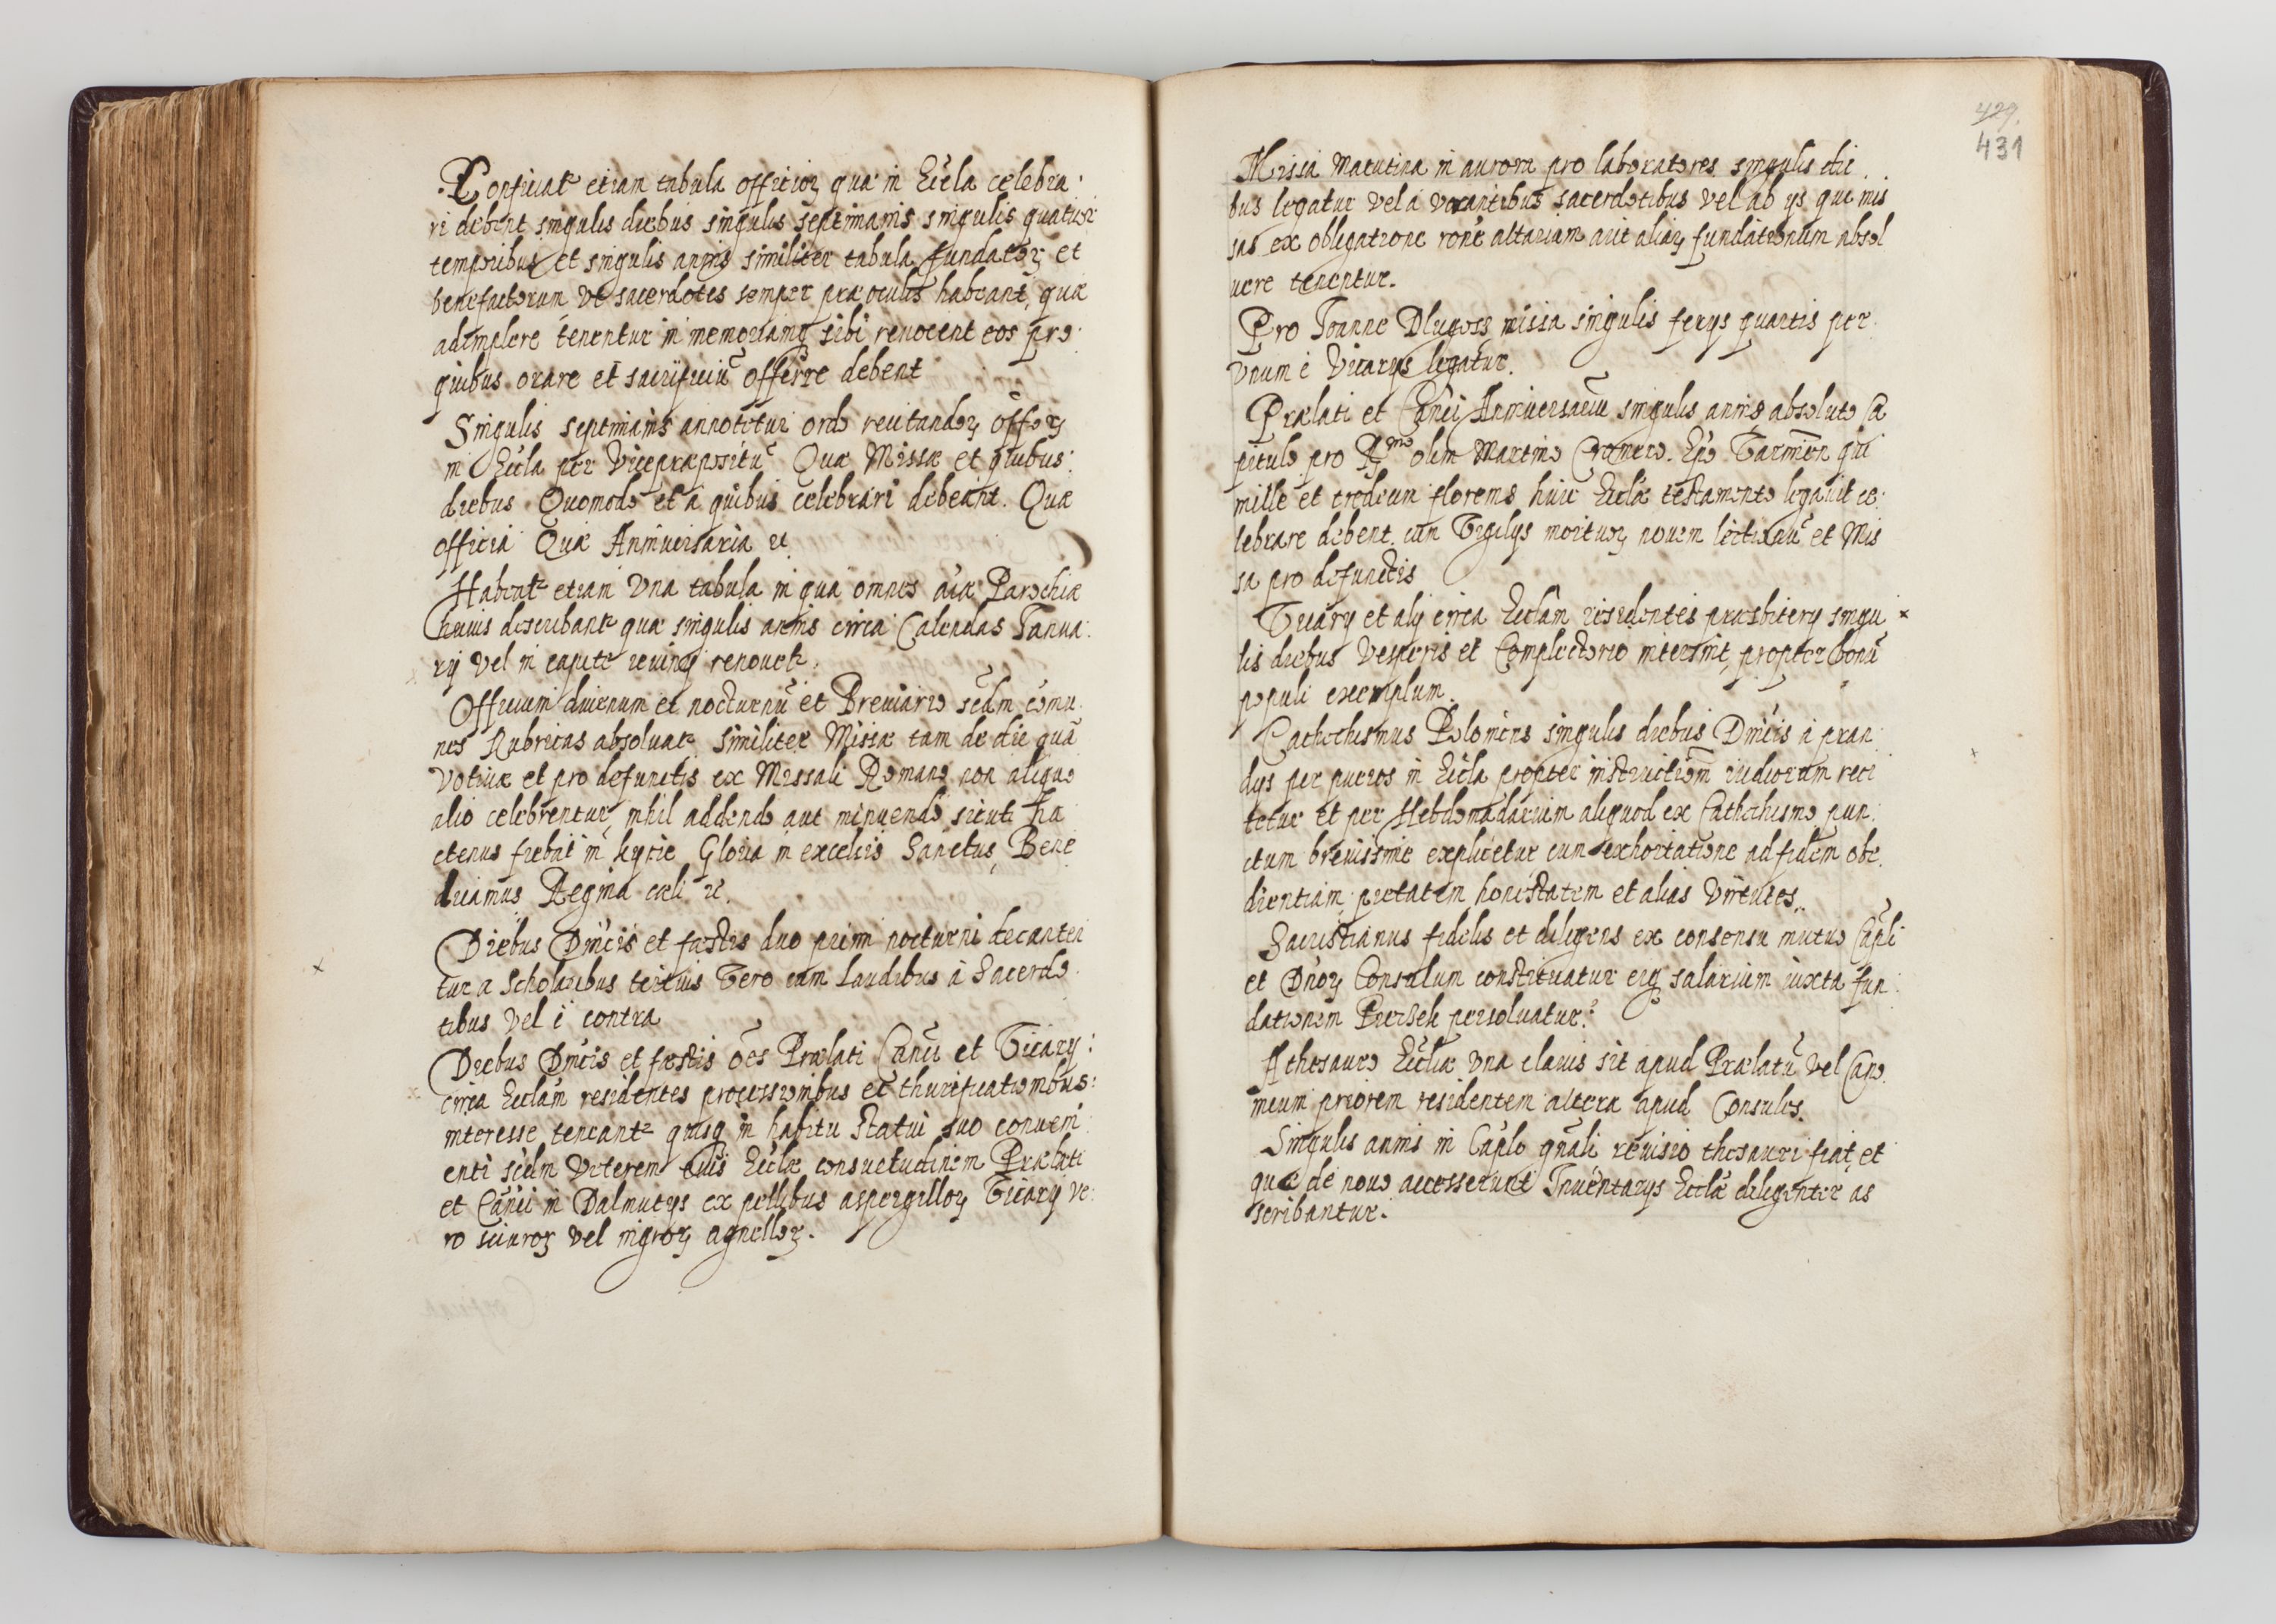 Conficiat̃ etiam tabula officioꝝ quæ in Eccla celebra
ri debent singulis diebus singulis septimanis singulis quatuor
temporibus et singulis annis similiter tabula fundatoꝝ et
benefactorum vt sacerdotes semper præ oculis habeant, quæ
adimplere tenentur in memoriamq sibi reuocent eos pro
quibus orare et sacrificiũ offerre debent
Singulis septimanis annotetur ordo recitandoꝝ offoꝝ
in Eccla per Vicepræpositũ Quæ Missæ et quibus
diebus Quomodo et a quibus celebrari debeant. Quæ
officia Quæ Anniuersaria etc
Habeat̃ etiam Vna tabula in qua omnes aiæ Parochiæ
huius describant̃ quæ singulis annis circa Calendas Janua
rij vel in capite ieiunij renouet̃.
Officium diurnum et nocturnũ et Breuiario secdm comu
nes Rubricas absoluat̃ similiter Missæ tam de die quã
votiuæ et pro defunctis ex Missali Romano non aliquo
alio celebrentur nihil addendo aut minuendo sicuti ha
ctenus fiebat in Kyrie Gloria in excelsis Sanctus, Bene
dicamus Regina cæli etc.
Diebus Dnicis et festis duo primi nocturni decanten
tur a Scholaribus tertius Vero cum laudibus à Sacerdo
tibus vel è contra
Diebus Dnicis et festis oẽs Prælati Canci et Vicarij
circa Ecclam residentes processionibus et thurificationibus
interesse teneant̃ quisq in habitu statui suo conueni
enti sedm Veterem eius Ecclæ consuetudinem Prælati
et Canci in Dalmucijs ex pellibus aspergilloꝝ Vicarij ve
ro sciuroꝝ vel nigroꝝ agnelloꝝ.
429.
431
Missa Matutina in aurora pro laboratores singulis die
bus legatur vel a vacantibus sacerdotibus vel ab ijs qui mis
sas ex obligatione rone altarium aut aliaꝝ fundationum absol
uere tenentur.
Pro Joanne Dlugoss missa singulis ferijs quartis per
Vnum è Vicarijs legatur.
Prælati et Canci Anniuersariũ singulis annis absoluto Ca
pitulo pro Rmo olim Martino Cromero Epo Varmien qui
mille et tredecim florenos huic Ecclæ testamento legauit ce
lebrare debent cum Vigilijs mortuoꝝ nouem lectionũ et Mis
sa pro defunctis
Vicarij et alij circa Ecclam residentes præsbiterij singu
lis diebus Vesperis et Complectorio intersint propter bonũ
populi exemplum.
Cathechismus Poloniens singulis diebus Dnicis à pran
dijs per pueros in Eccla propter instructiom rudiorum reci
tetur et per Hebdomadarium aliquod ex Cathechismo pun
ctum breuissime explicetur cum exhortatione ad fidem obe
dientiam, pietatem honestatem et alias Virtutes.
Sacristianus fidelis et diligens ex consensu mutuo Capli
et Dnoꝝ Consulum constituatur eiq salarium iuxta fun
dationem persoluatur.
A thesauro Ecclæ Vna clauis sit apud Prælatũ vel Cano
nicum priorem residentem altera apud Consules.
Singulis annis in Caplo gnali reuisio thesauri fiat et
quæ de nouo accesserunt Inuentarijs Ecclæ diligenter as
scribantur.